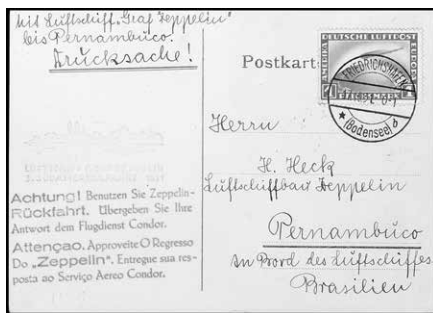 Mit Luftschiff „Graf Zeppelin"
bis Pernambuco.
Drucksache!
Postkart
DEUTSCHE LUFTPOST
FRIEDRICHSHAFEN
(Bodensee)
Herrn
H. Heck
Luftschiffbau Zeppelin
Pernambuco
an Bord des Luftschiffes
Brasilien
Achtung! Benutzen Sie Zeppelin-
Rückfahrt. Übergeben Sie Ihre
Antwort dem Flugdienst Condor.
Attençao. Approveite O Regresso
Do „Zeppelin". Entregue sua res-
posta ao Serviço Aereo Condor.